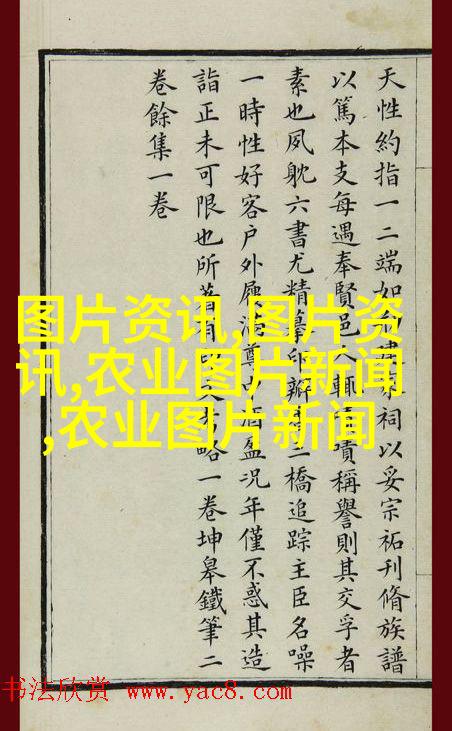 天性約指一二端如建祠以妥宗祏刊脩族譜
以篤本支每遇奉賢邑人輒嘖稱譽則其交孚者
素也夙躭六書尤精摹印瓣三橋追踪主臣名噪
一時性好客户外屨滿尊中酒盈况年僅不惑其造
詣正未可限也所著有印文考略一卷坤皋鐵筆二
卷餘集一卷
图片资讯,图片资
讯,农业图片新闻
,农业图片新闻
书法欣赏 www.yac8.com